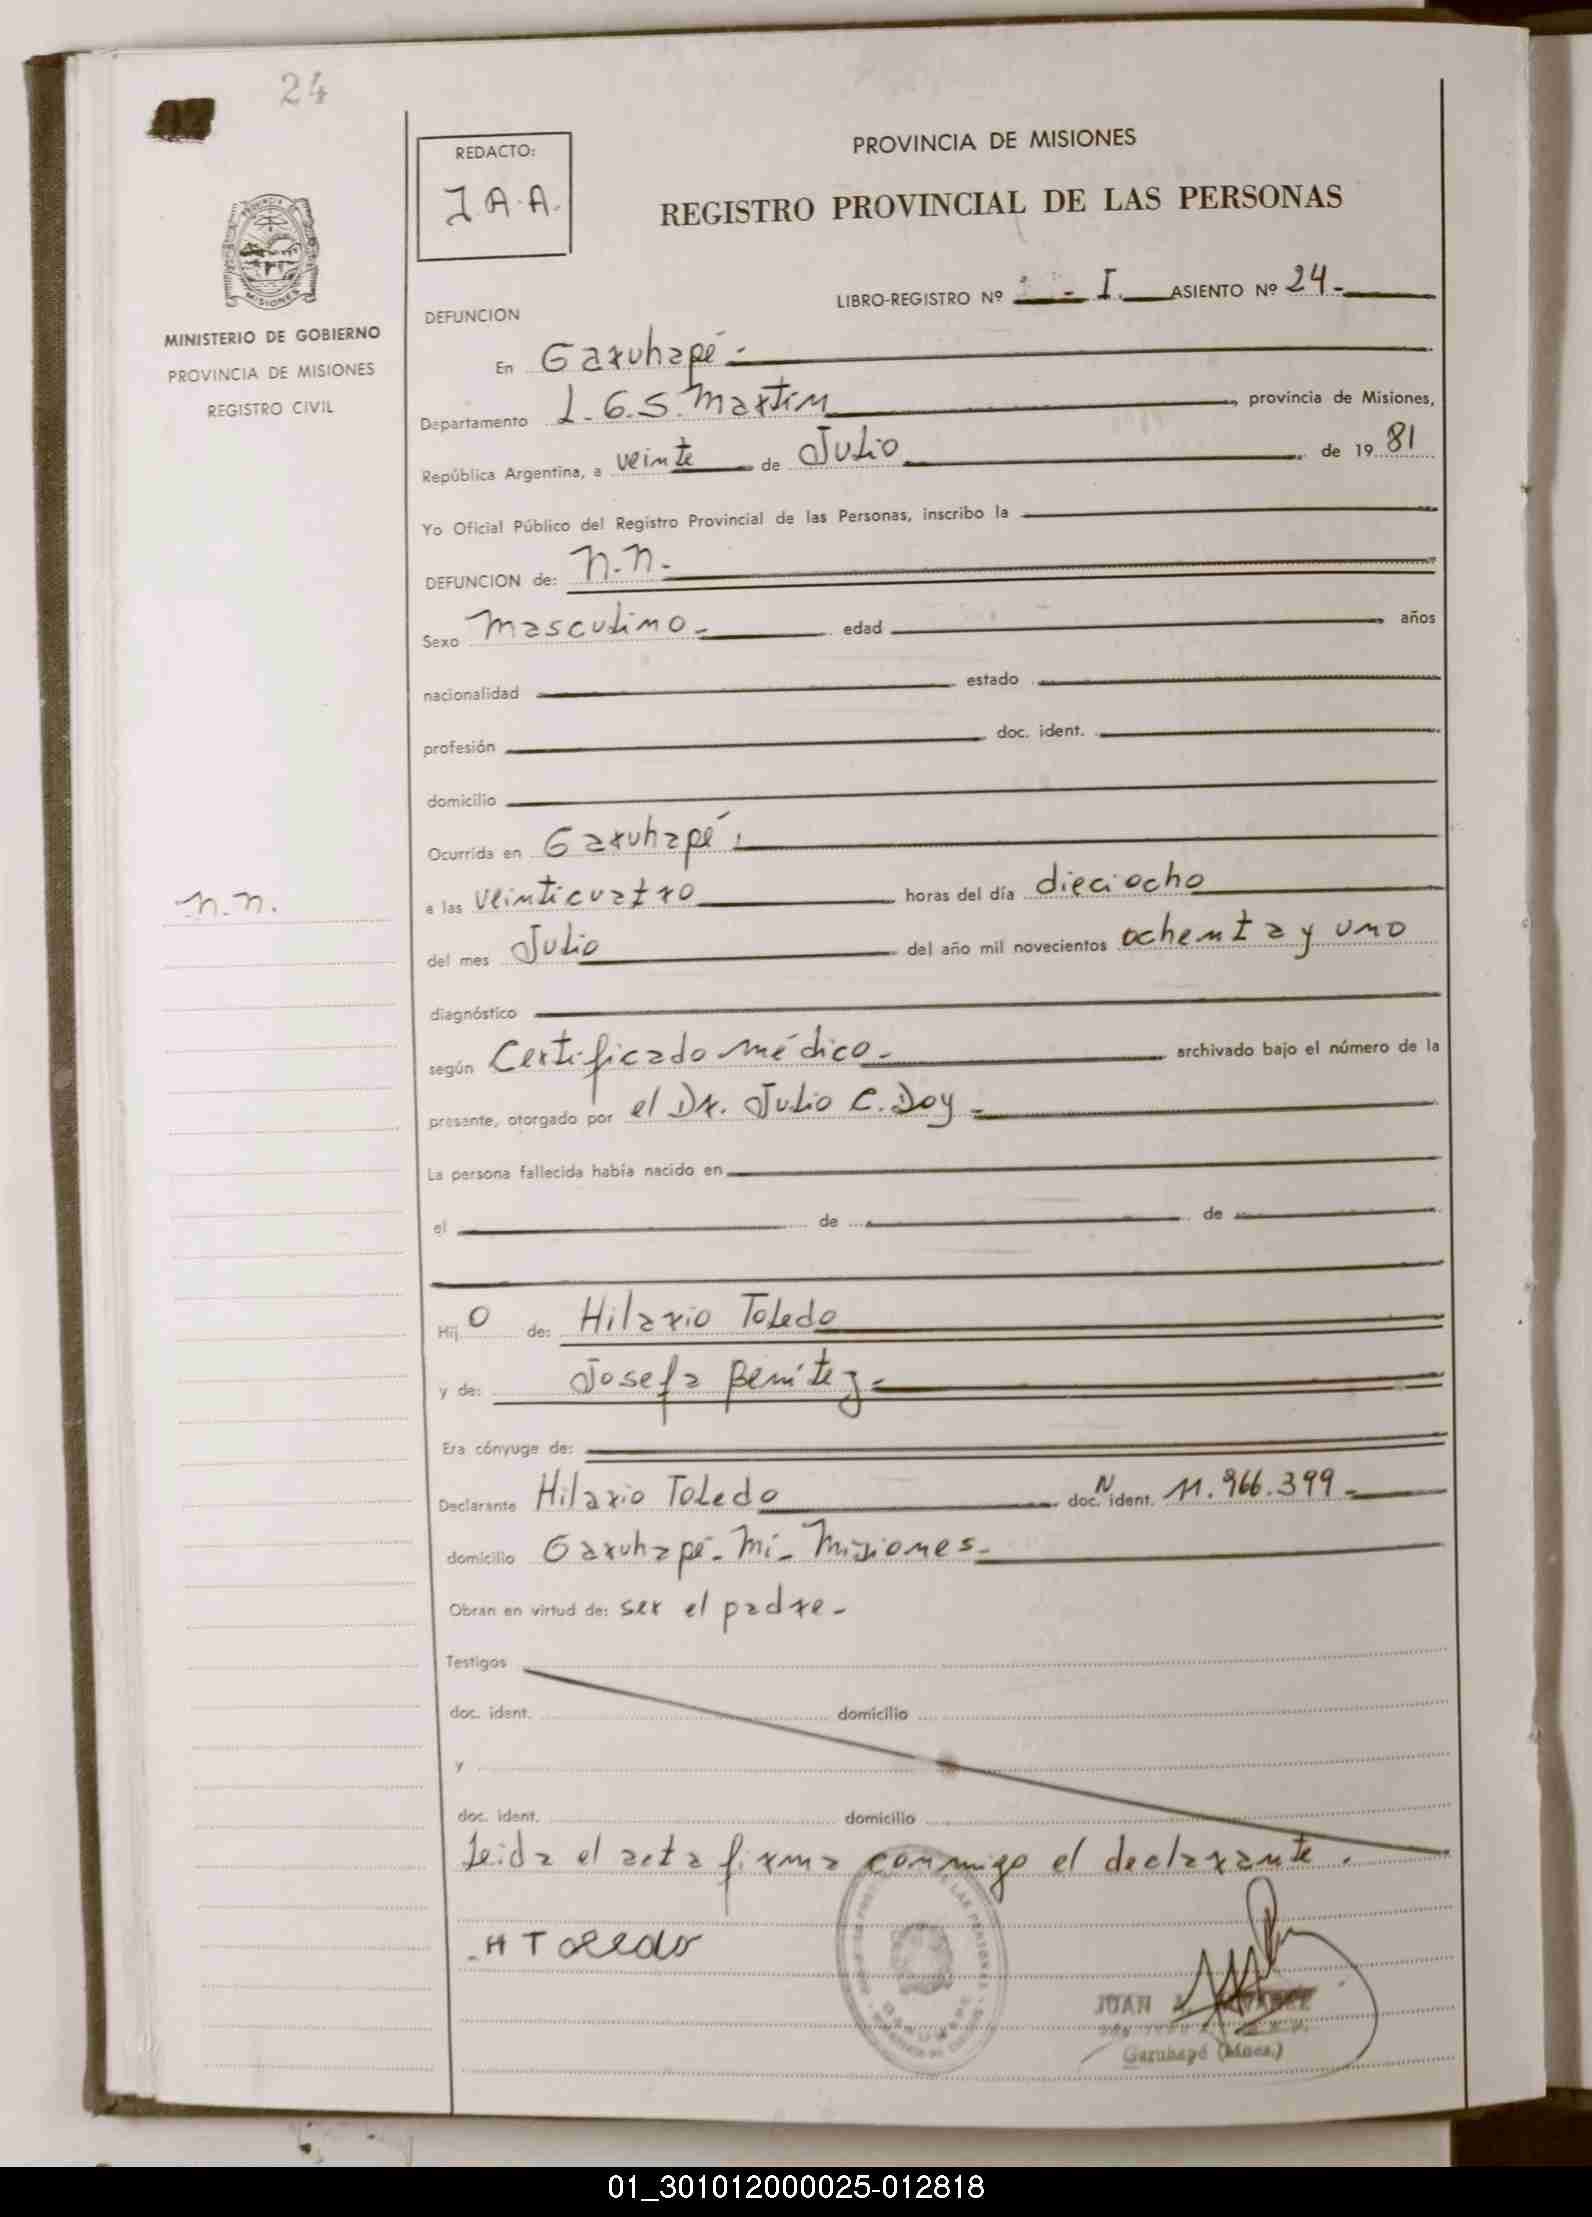 24
REDACTO:
J.A.A.
PROVINCIA DE MISIONES
REGISTRO PROVINCIAL DE LAS PERSONAS
MISIONES
MINISTERIO DE GOBIERNO
PROVINCIA DE MISIONES
REGISTRO CIVIL
LIBRO-REGISTRO Nº - I. ASIENTO Nº 24-
DEFUNCION
En Garuhapé-
Departamento L.G.S. Martin, provincia de Misiones,
República Argentina, a veinte de Julio de 19 81
Yo Oficial Público del Registro Provincial de las Personas, inscribo la
DEFUNCION de: N.N.-
Sexo Masculino- edad años
nacionalidad estado
profesión doc. ident.
domicilio
Ocurrida en Garuhapé.
N.N.
a las veinticuatro horas del día dieciocho
del mes Julio del año mil novecientos ochenta y uno
diagnóstico
según Certificado médico- archivado bajo el número de la
presente, otorgado por el Dr. Julio C. Doy-
La persona fallecida había nacido en
el de de
Hij o de: Hilario Toledo
y de: Josefa Benitez-
Era cónyuge de:
Declarante Hilario Toledo doc. N ident. 11.966.399-
domicilio Garuhapé- Mi- Misiones-
Obran en virtud de: ser el padre-
Testigos
doc. ident. domicilio
y
doc. ident. domicilio
Leida el acta firma conmigo el declarante.
H Toledo
JUAN
Garuhapé (Mnes.)
01_301012000025-012818